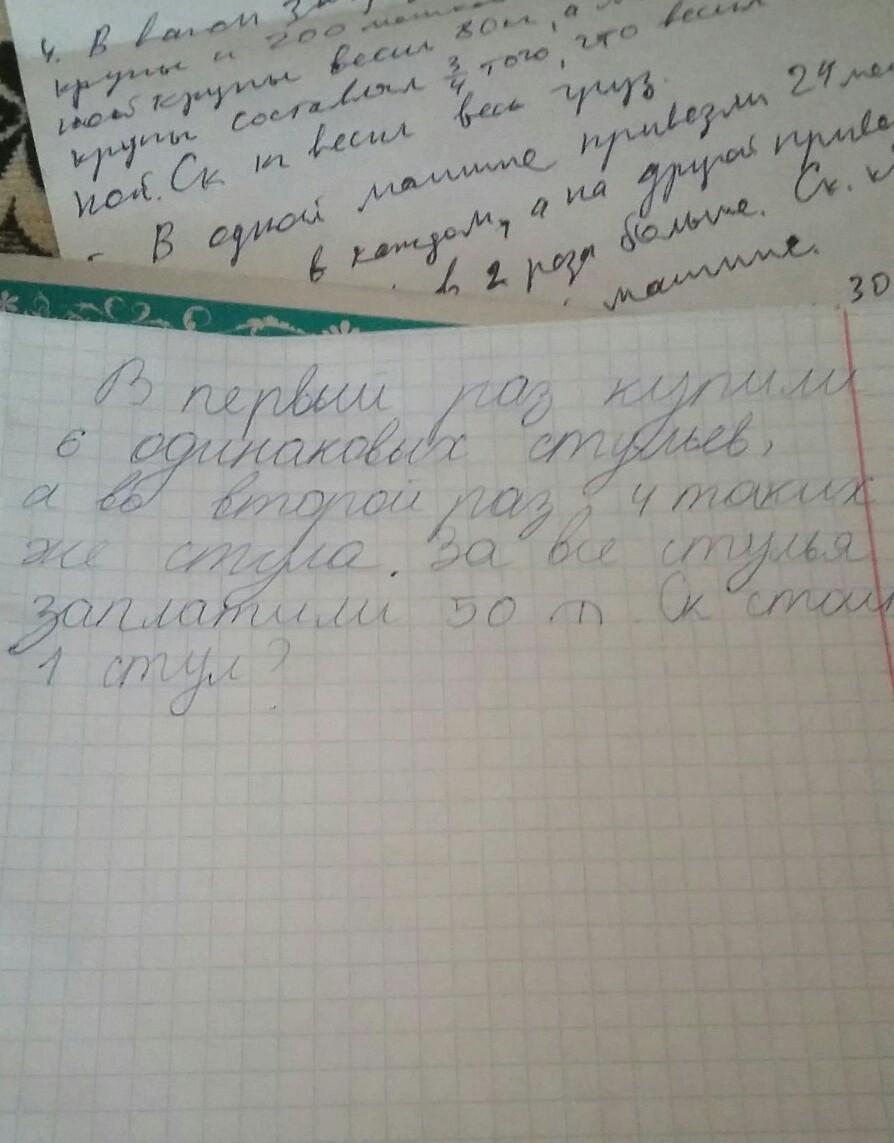 4. В вагон
крупы и 200
крупы весил 80
крупы составлял 3/4 того, что весил
Ск весил весь груз.
В одной машине привезли 24
в каждом, а на другой
в 2 раза больше. Ск.
машине.
30
В первый раз купили
6 одинаковых стульев,
а во второй раз 4 таких
же стула. За все стулья
заплатили 50 Ск стоит
1 стул?